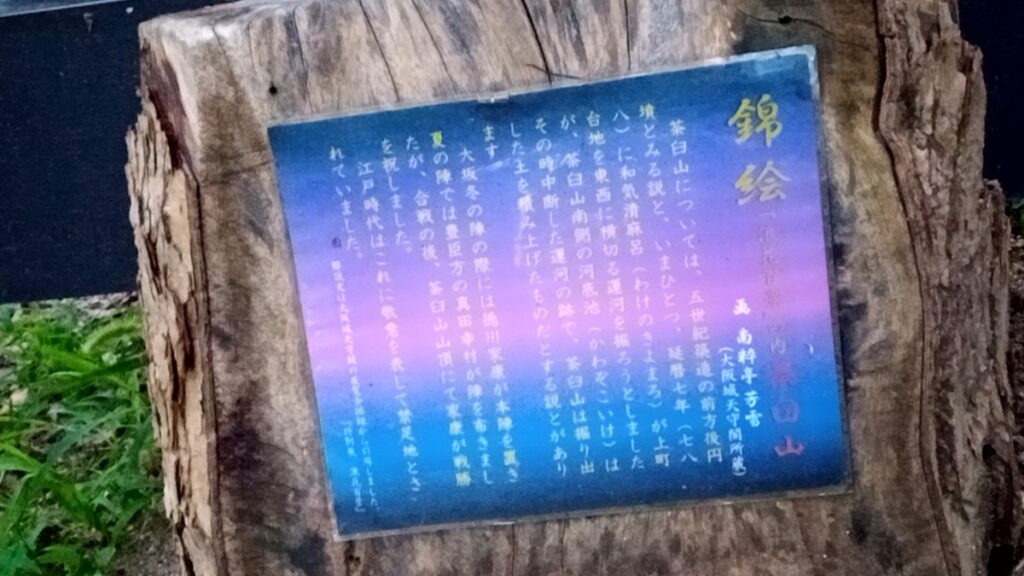 錦絵 茶臼山
画 南粋亭芳雪
(大阪城天守閣所蔵)
茶臼山については、五世紀築造の前方後円
墳とみる説と、いまひとつ、延暦七年(七八
八)に和気清麻呂(わけのきよまろ)が上町
台地を東西に横切る運河を掘ろうとしました
が、茶臼山南側の河底池(かわぞこいけ)は
その時中断した運河の跡で、茶臼山は掘り出
した土を積み上げたものだとする説とがあり
ます。
大坂冬の陣の際には徳川家康が本陣を置き
夏の陣では豊臣方の真田幸村が陣を布きまし
たが、合戦の後、茶臼山山頂にて家康が戦勝
を祝しました。
江戸時代はこれに敬意を表して禁足地とさ
れていました。